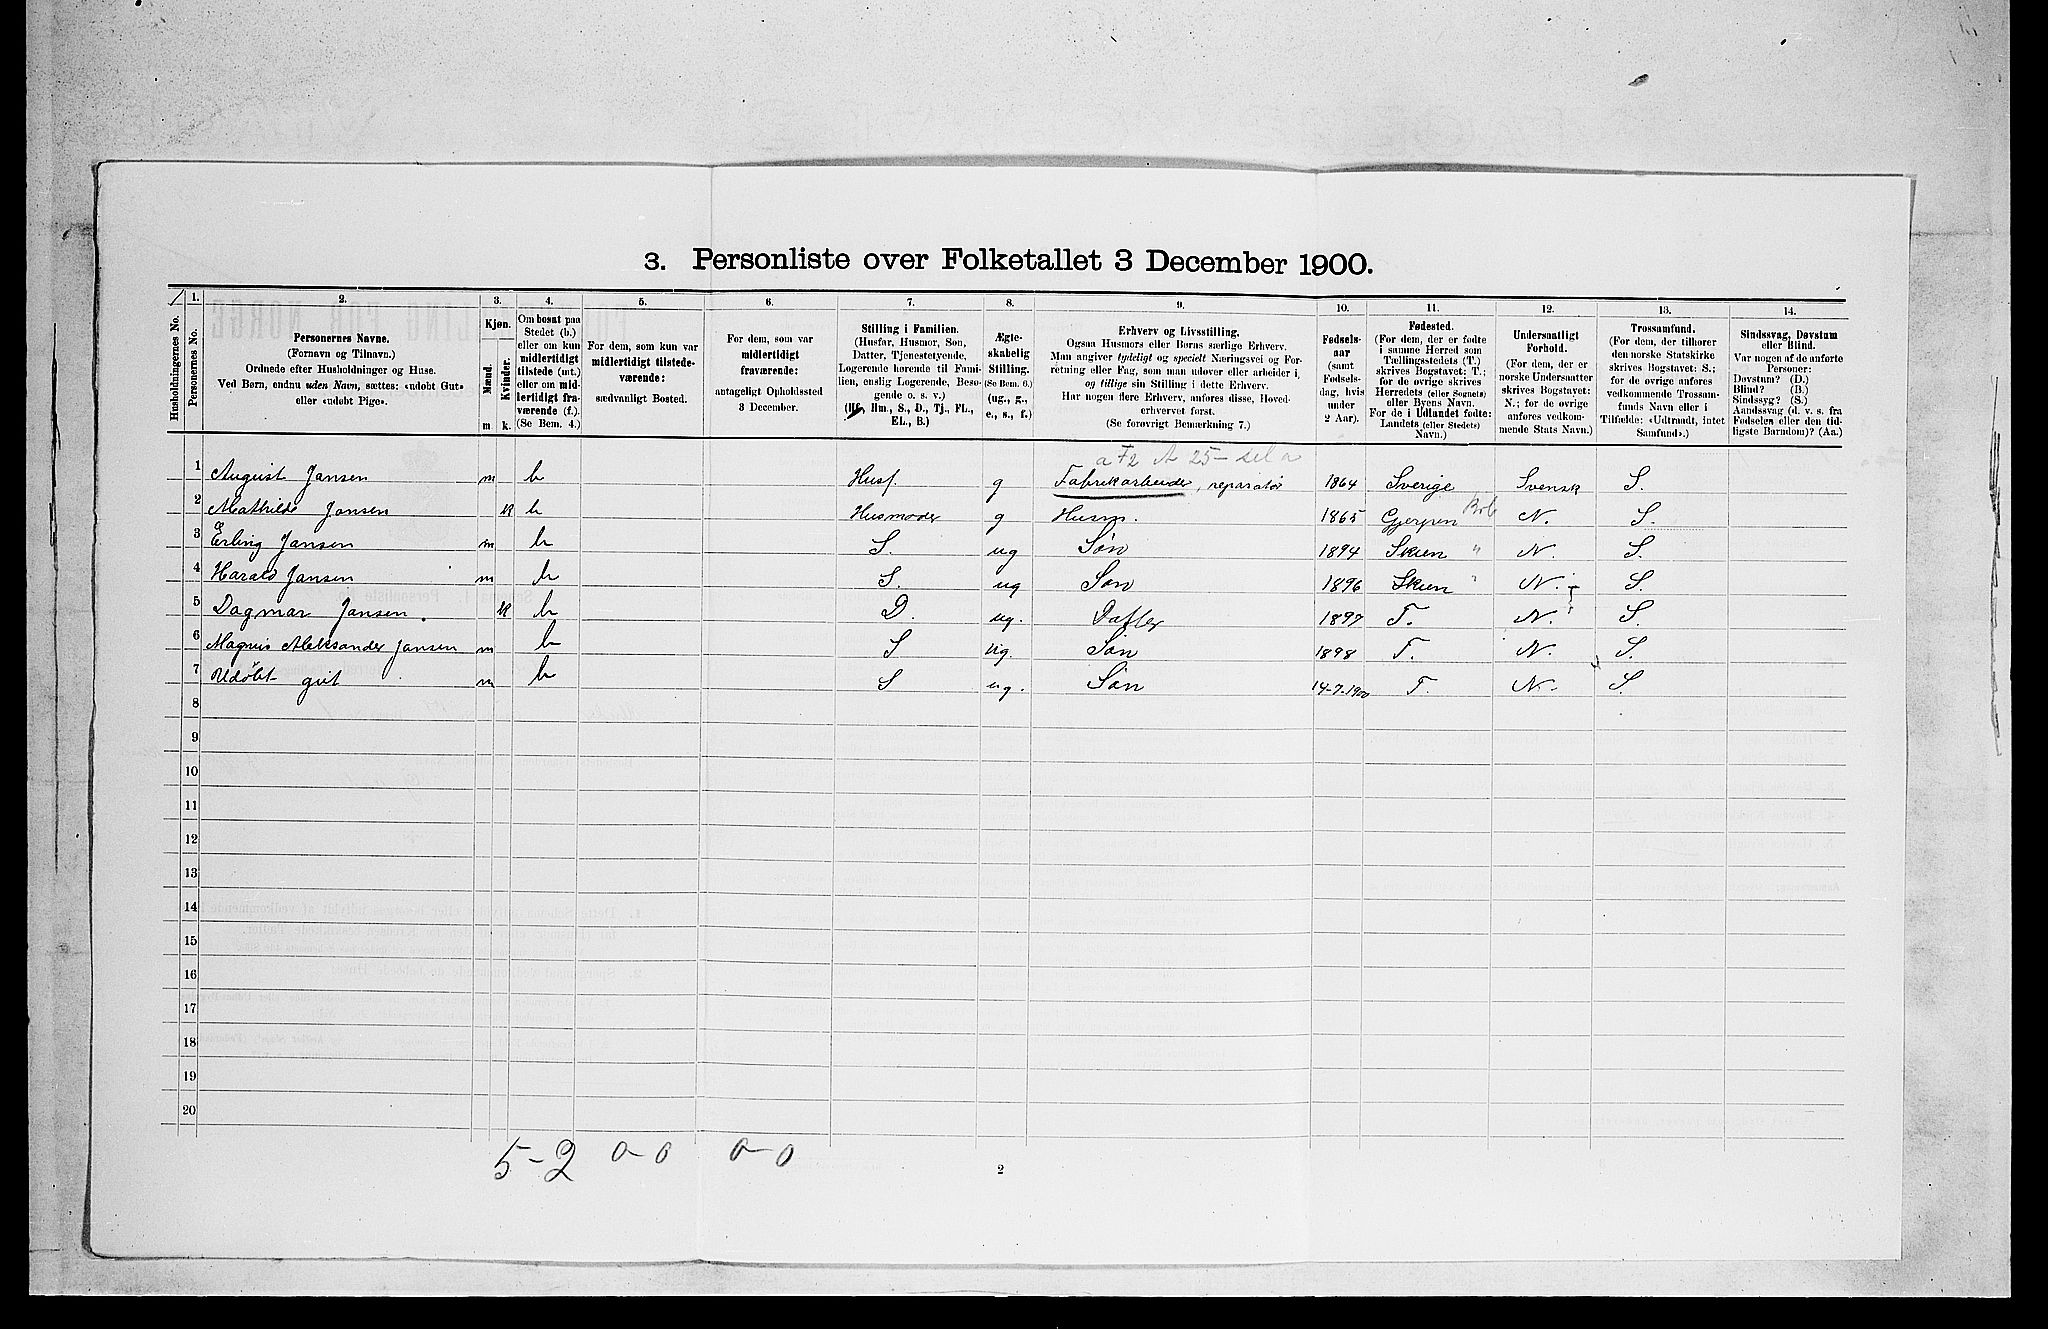 3. Personliste over Folketallet 3 December 1900.
Husholdningernes No.
1.
Personernes No.
2.
Personernes Navne.
(Fornavn og Tilnavn.)
Ordnede efter Husholdninger og Huse.
Ved Børn, endnu uden Navn, sættes: «udøbt Gut»
eller «udøbt Pige».
3.
Kjøn.
Mænd.
Kvinder.
m
k.
4.
Om bosat paa
Stedet (b.)
eller om kun
midlertidigt
tilstede (mt.)
eller om mid-
lertidigt fra-
værende (f.).
(Se Bem. 4.)
5.
For dem, som kun var
midlertidigt tilstede-
værende:
sædvanligt Bosted.
6.
For dem, som var
midlertidigt
fraværende:
antageligt Opholdssted
3 December.
7.
Stilling i Familien.
(Husfar, Husmor, Søn,
Datter, Tjenestetyende,
Logerende hørende til Fami-
lien, enslig Logerende, Besø-
gende o. s. v.)
(Hf., Hm., S., D., Tj., FL.,
EL., B.)
8.
Ægte-
skabelig
Stilling.
(Se Bem. 6.)
(ug., g.,
e., s., f.)
9.
Erhverv og Livsstilling.
Ogsaa Husmors eller Børns særlige Erhverv.
Man angiver tydeligt og specielt Næringsvei og For-
retning eller Fag, som man udøver eller arbeider i,
og tillige sin Stilling i dette Erhverv.
Har nogen flere Erhverv, anføres disse, Hoved-
erhvervet først.
(Se forøvrigt Bemærkning 7.)
10.
Fødsels-
aar
(samt
Fødsels-
dag, hvis
under
2 Aar).
11.
Fødested.
(For dem, der er fødte
i samme Herred som
Tællingsstedets (T.)
skrives Bogstavet: T.;
for de øvrige skrives
Herredets (eller Sognets)
eller Byens Navn.
For de i Udlandet fødte:
Landets (eller Stedets)
Navn.)
12.
Undersaatligt
Forhold.
(For dem, der er
norske Undersaatter
skrives Bogstavet:
N.; for de øvrige
anføres vedkom-
mende Stats Navn.)
13.
Trossamfund.
(For dem, der tilhører
den norske Statskirke
skrives Bogstavet: S.;
for de øvrige anføres
vedkommende Trossam-
funds Navn eller i
Tilfælde: «Udtraadt, intet
Samfund».)
14.
Sindssvag, Døvstum
eller Blind.
Var nogen af de anførte
Personer:
Døvstum? (D.)
Blind? (B.)
Sindssyg? (S.)
Aandssvag (d. v. s. fra
Fødselen eller den tid-
ligste Barndom)? (Aa.)
1 August Jansen m b Husf. g Fabrikarbeider, reparatør 1864 Sverige Svensk S.
2 Mathilde Jansen k b Husmoder g Husm. 1865 Gjerpen N. S.
3 Erling Jansen m b S. ug Søn 1894 Skien " N. S.
4 Harald Jansen m b S. ug Søn 1896 Skien " N. S.
5 Dagmar Jansen. k b D. ug. Datter 1897 T. N. S.
6 Magnus Aleksander Jansen m b S ug. Søn 1898 T. N. S.
7 Udøbt gut m b S ug. Søn 14-7-1900 T. N. S.
8
9
10
11
12
13
14
15
16
17
18
19
20
5-2 0-0 0-0
2